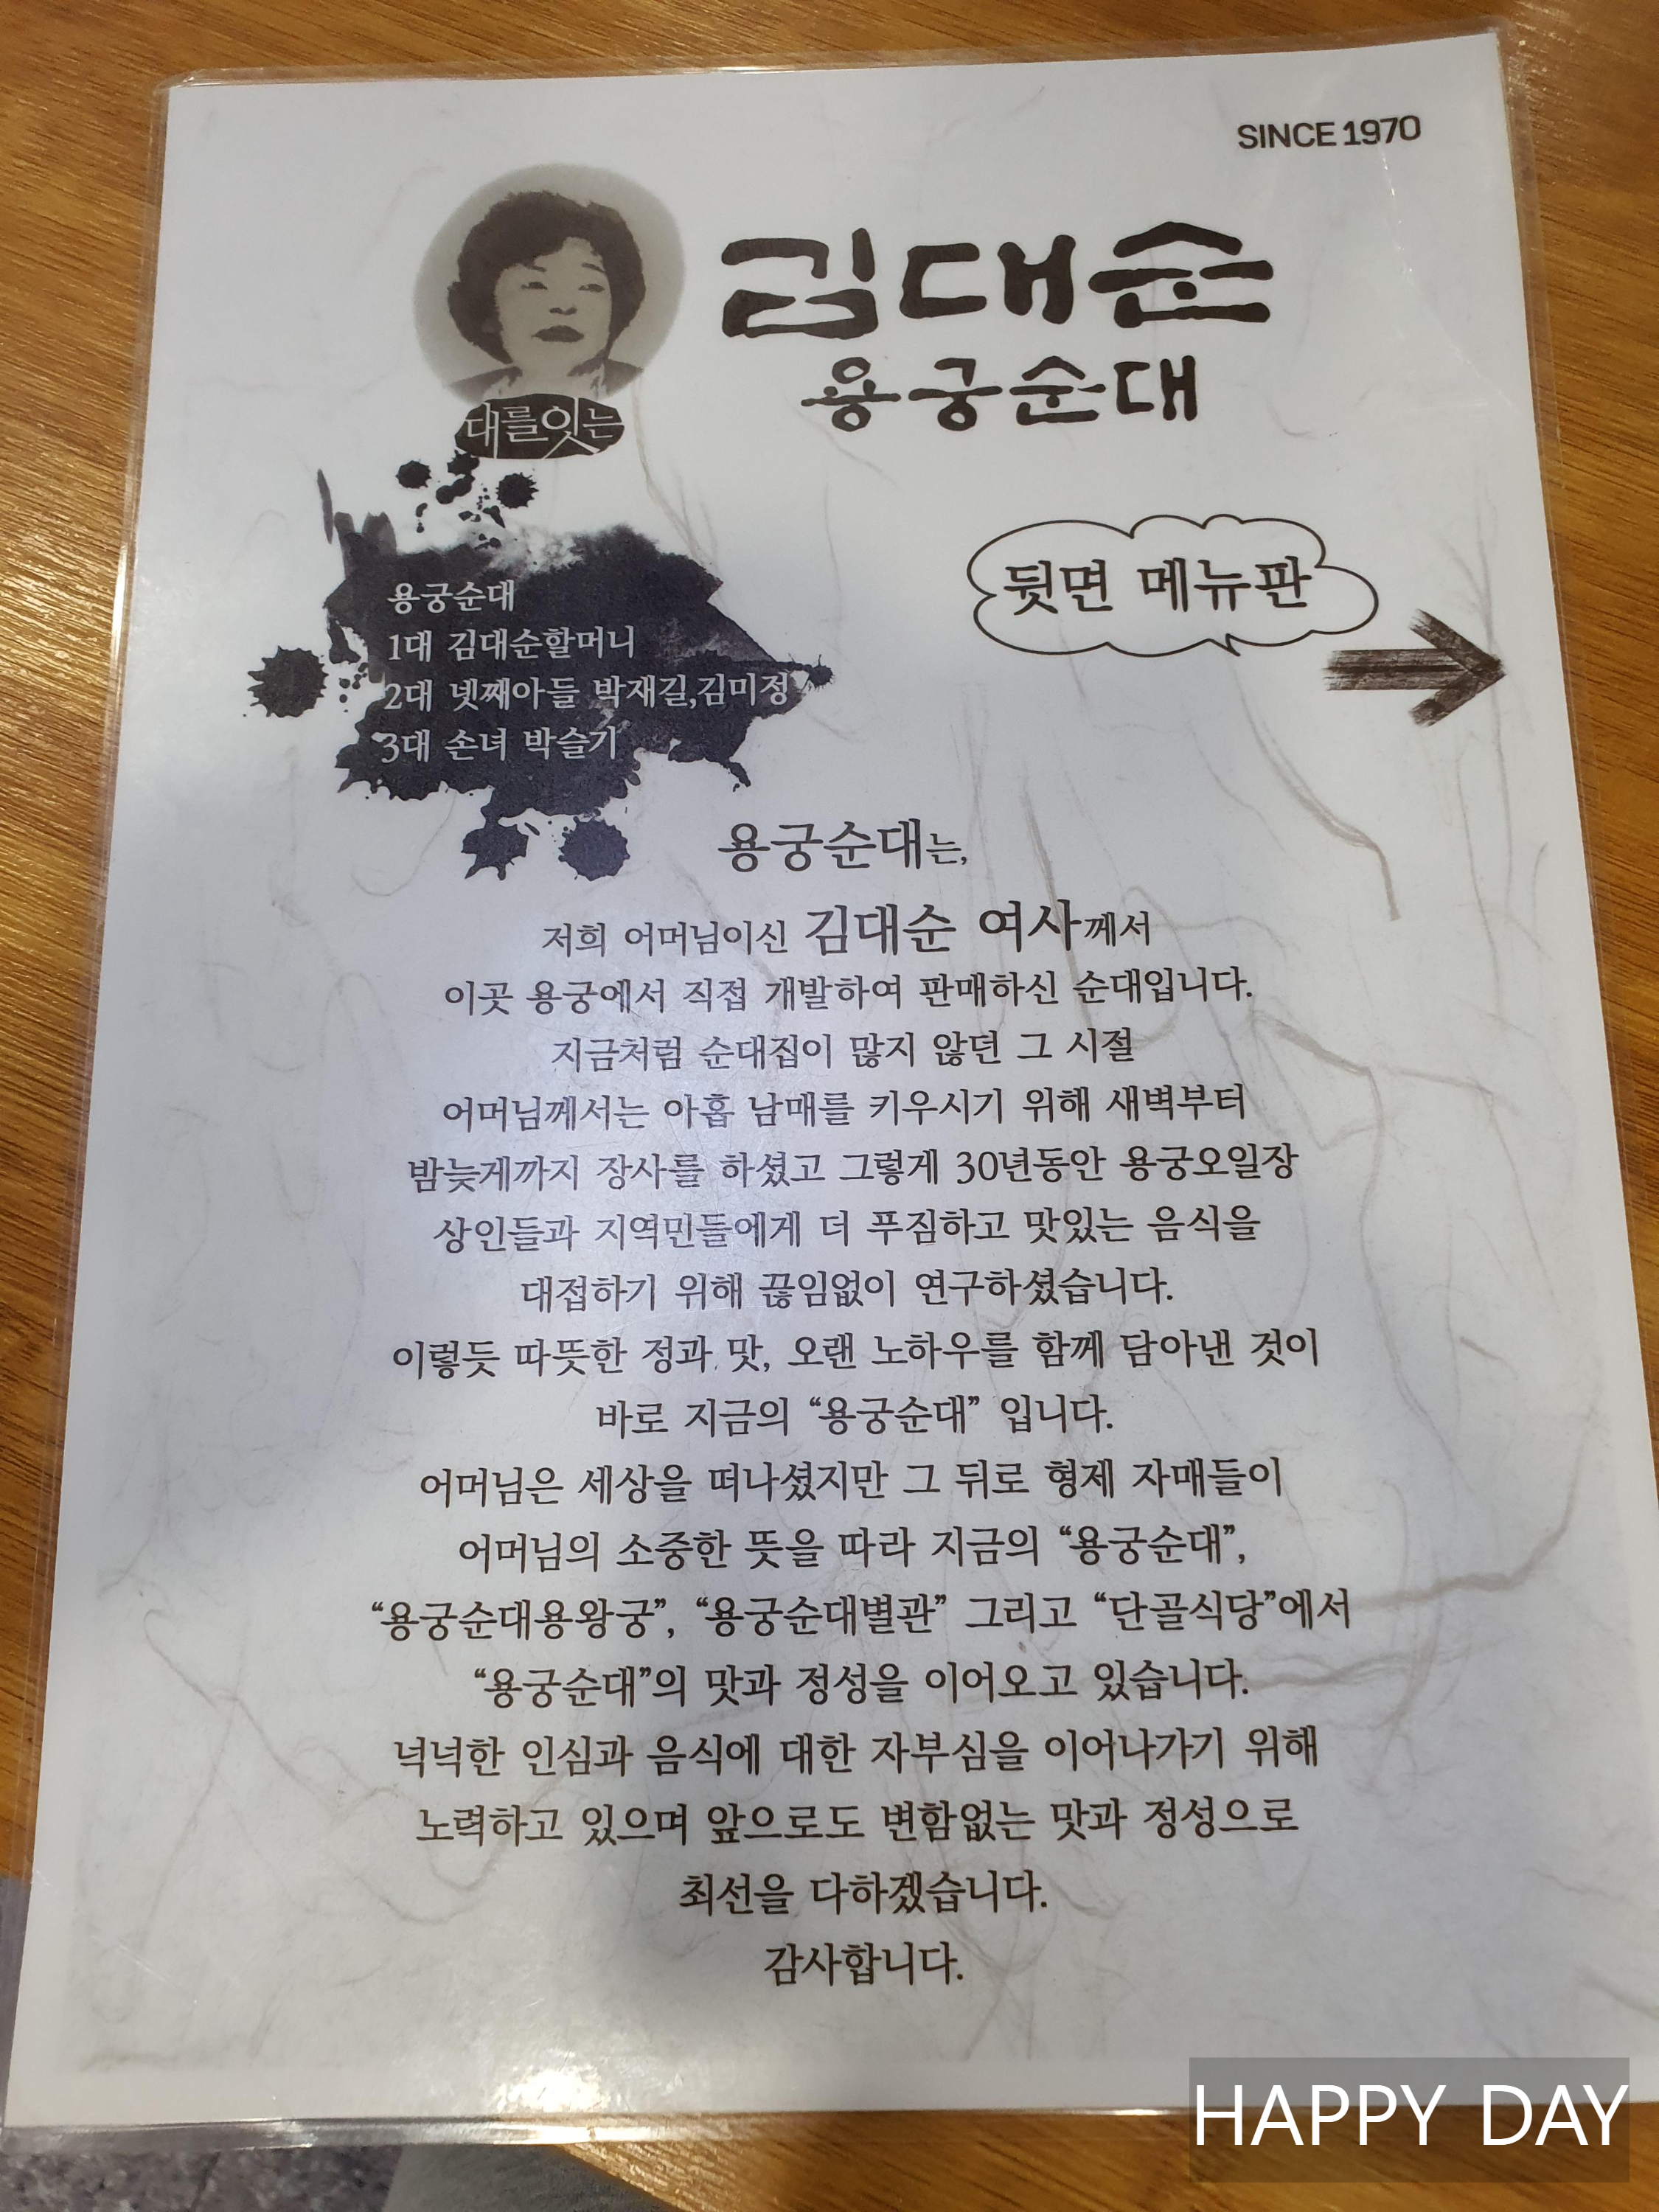 SINCE 1970
김대순
용궁순대
대를잇는
뒷면 메뉴판
용궁순대
1대 김대순할머니
2대 넷째아들 박재길,김미정
3대 손녀 박슬기
용궁순대는,
저희 어머님이신 김대순 여사께서
이곳 용궁에서 직접 개발하여 판매하신 순대입니다.
지금처럼 순대집이 많지 않던 그 시절
어머님께서는 아홉 남매를 키우시기 위해 새벽부터
밤늦게까지 장사를 하셨고 그렇게 30년동안 용궁오일장
상인들과 지역민들에게 더 푸짐하고 맛있는 음식을
대접하기 위해 끊임없이 연구하셨습니다.
이렇듯 따뜻한 정과 맛, 오랜 노하우를 함께 담아낸 것이
바로 지금의 “용궁순대” 입니다.
어머님은 세상을 떠나셨지만 그 뒤로 형제 자매들이
어머님의 소중한 뜻을 따라 지금의 “용궁순대”,
“용궁순대용왕궁”, “용궁순대별관” 그리고 “단골식당”에서
“용궁순대”의 맛과 정성을 이어오고 있습니다.
넉넉한 인심과 음식에 대한 자부심을 이어나가기 위해
노력하고 있으며 앞으로도 변함없는 맛과 정성으로
최선을 다하겠습니다.
감사합니다.
HAPPY DAY